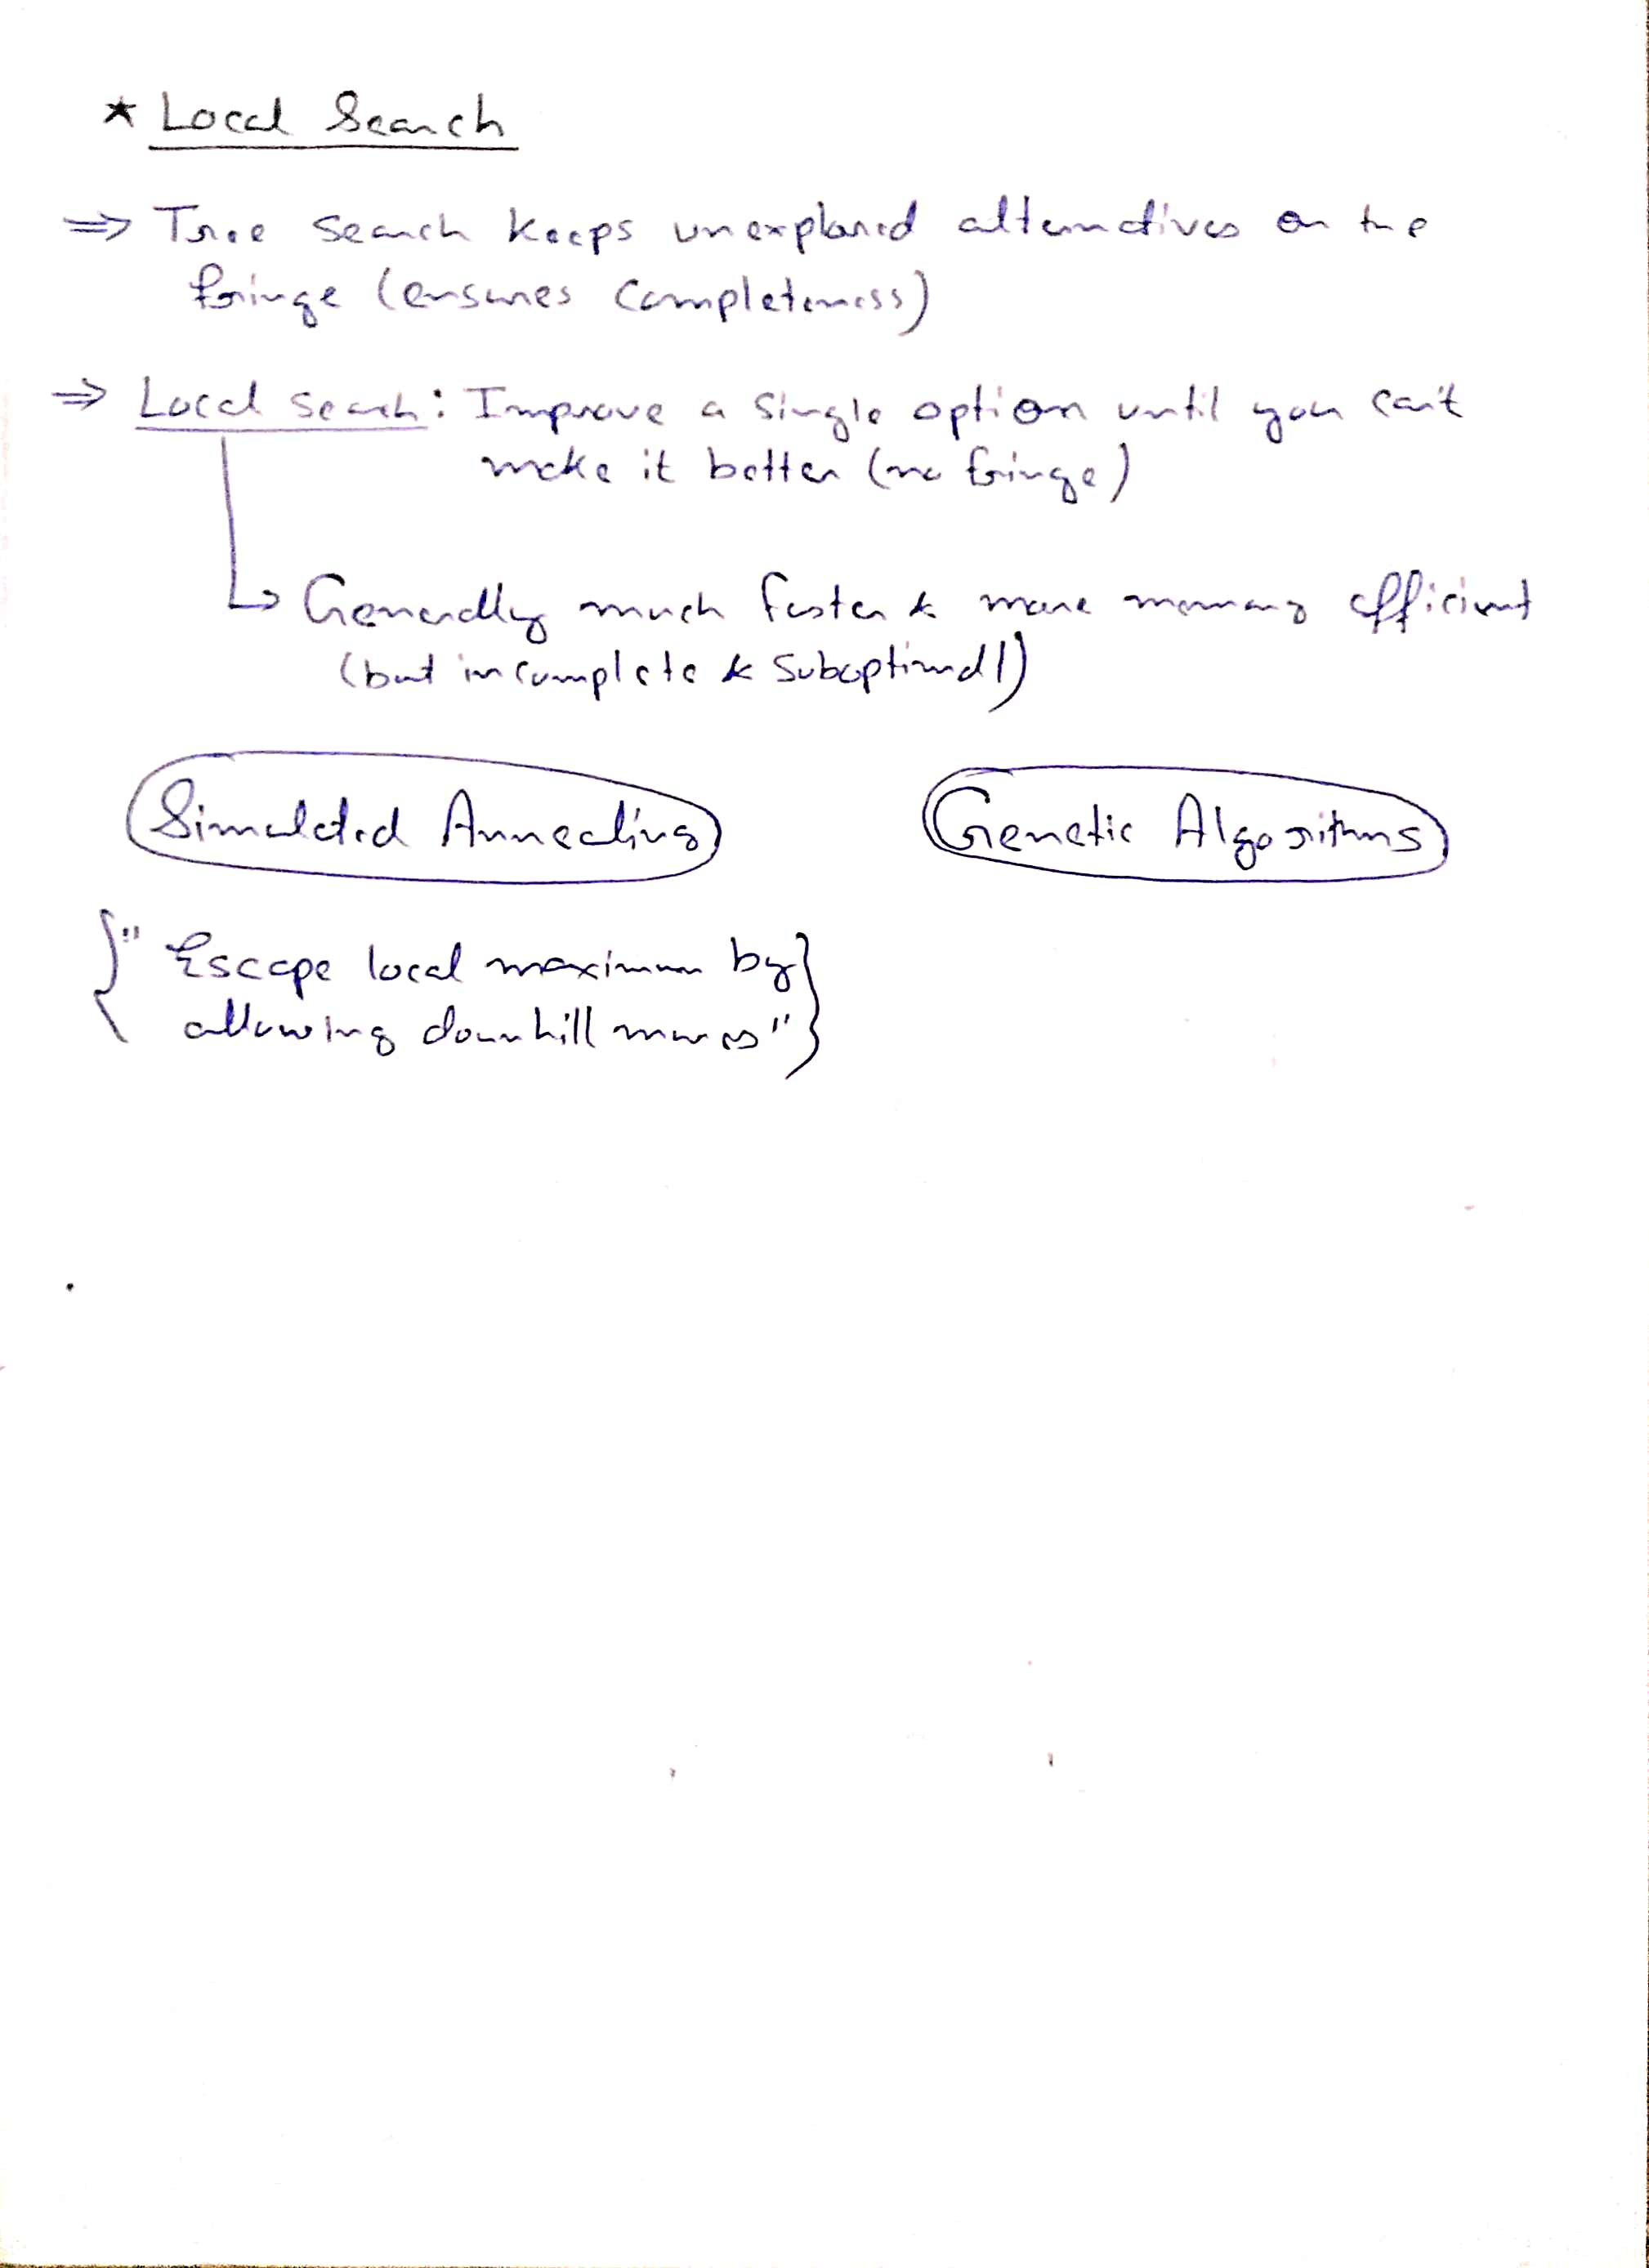 ★ Local Search
⇒ Tree search keeps unexplored alternatives on the
fringe (ensures completeness)
⇒ Local search: Improve a single option until you can't
make it better (no fringe)
↳ Generally much faster & more memory efficient
(but incomplete & suboptimal!)
Simulated Annealing Genetic Algorithms
{" Escape local maximum by
allowing downhill moves"}